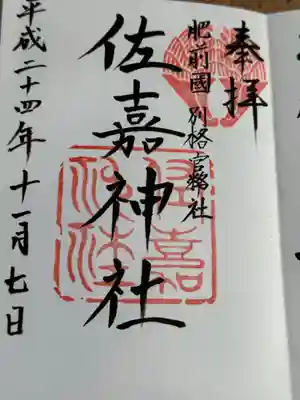 奉拝
肥前國 別格官幣社
佐嘉神社
平成二十四年十一月七日